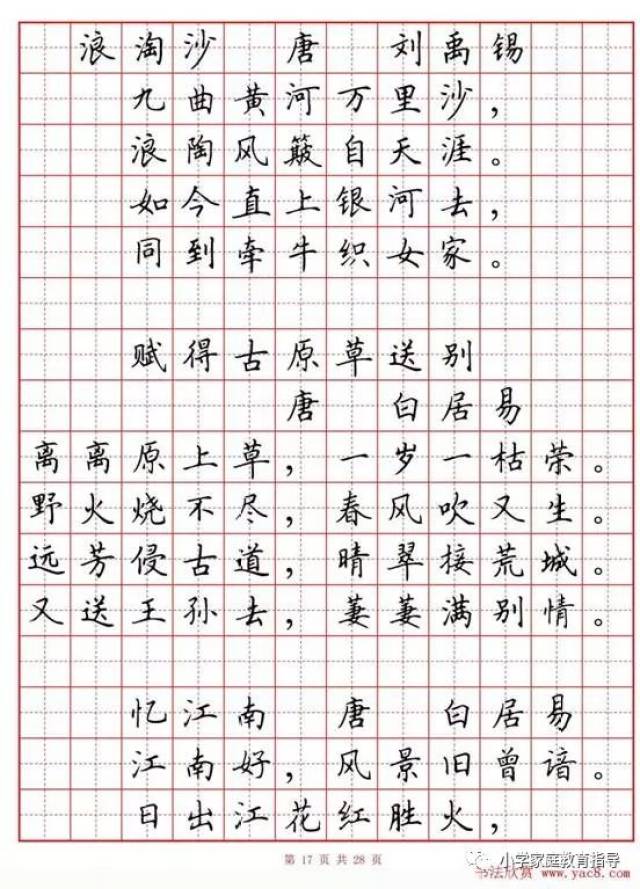 浪淘沙 唐 刘禹锡
九曲黄河万里沙，
浪陶风簸自天涯。
如今直上银河去，
同到牵牛织女家。
赋得古原草送别
唐 白居易
离离原上草，一岁一枯荣。
野火烧不尽，春风吹又生。
远芳侵古道，晴翠接荒城。
又送王孙去，萋萋满别情。
忆江南 唐 白居易
江南好，风景旧曾谙。
日出江花红胜火，
第 17 页 共 28 页
小学家庭教育指导
书法欣赏 www.yac8.com